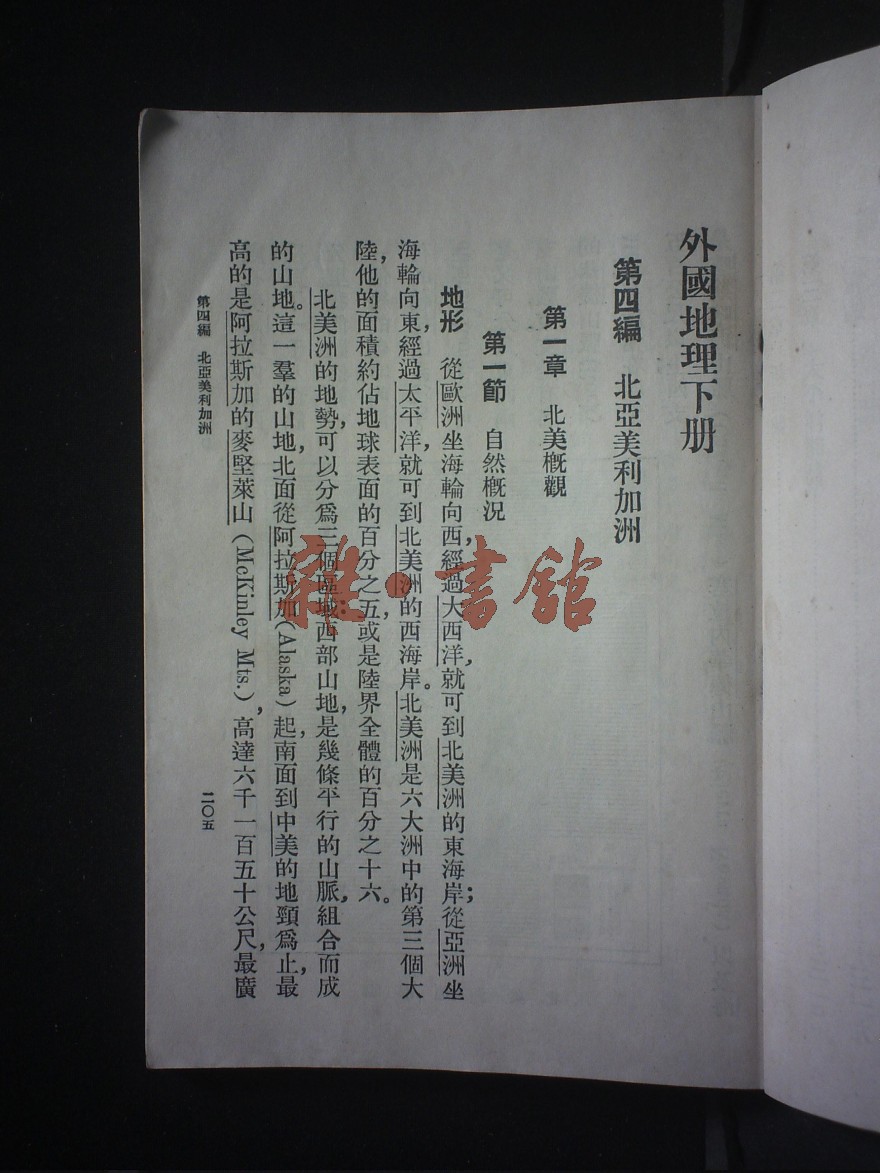 外國地理下册
第四編　北亞美利加洲
第一章　北美概觀
第一節　自然概況
地形　從歐洲坐海輪向西，經過大西洋，就可到北美洲的東海岸；從亞洲坐
海輪向東，經過太平洋，就可到北美洲的西海岸。北美洲是六大洲中的第三個大
陸，他的面積約佔地球表面的百分之五，或是陸界全體的百分之十六。
北美洲的地勢，可以分爲三個區域：西部山地，是幾條平行的山脈，組合而成
的山地。這一羣的山地，北面從阿拉斯加(Alaska)起，南面到中美的地頸爲止，最
高的是阿拉斯加的麥堅萊山(McKinley Mts.)，高達六千一百五十公尺，最廣
第四編　北亞美利加洲　二〇五
雜·書館